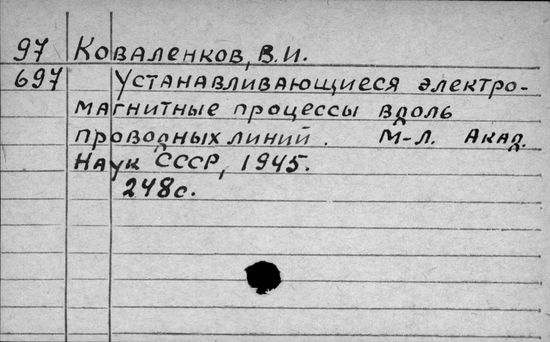 97 Коваленков, В.И.
697 Устанавливающиеся электро-
магнитные процессы вдоль
проводных линий. М-Л. Акад.
Наук СССР, 1945.
248с.